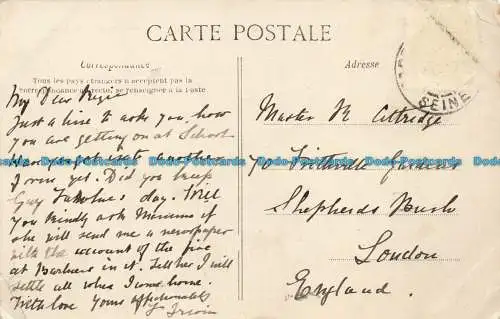 CARTE POSTALE
Correspondance
Tous les pays étrangers n'acceptent pas la
correspondance au recto, se renseigner à la Poste
Adresse
SEINE
My Dear Regie
Just a line to ask you how
you are getting on at School
Have you
I von yet. Did you keep
Guy Fawkes day. Will
you kindly ask Mummie if
she will send me a newspaper
with the account of the fire
at Barkers in it. Tell her I will
settle all when I come home.
With love Yours affectionately
Irwin
Master R Attridge
70 Frithville Gardens
Shepherds Bush
London
England.
Delcampe-Postcards